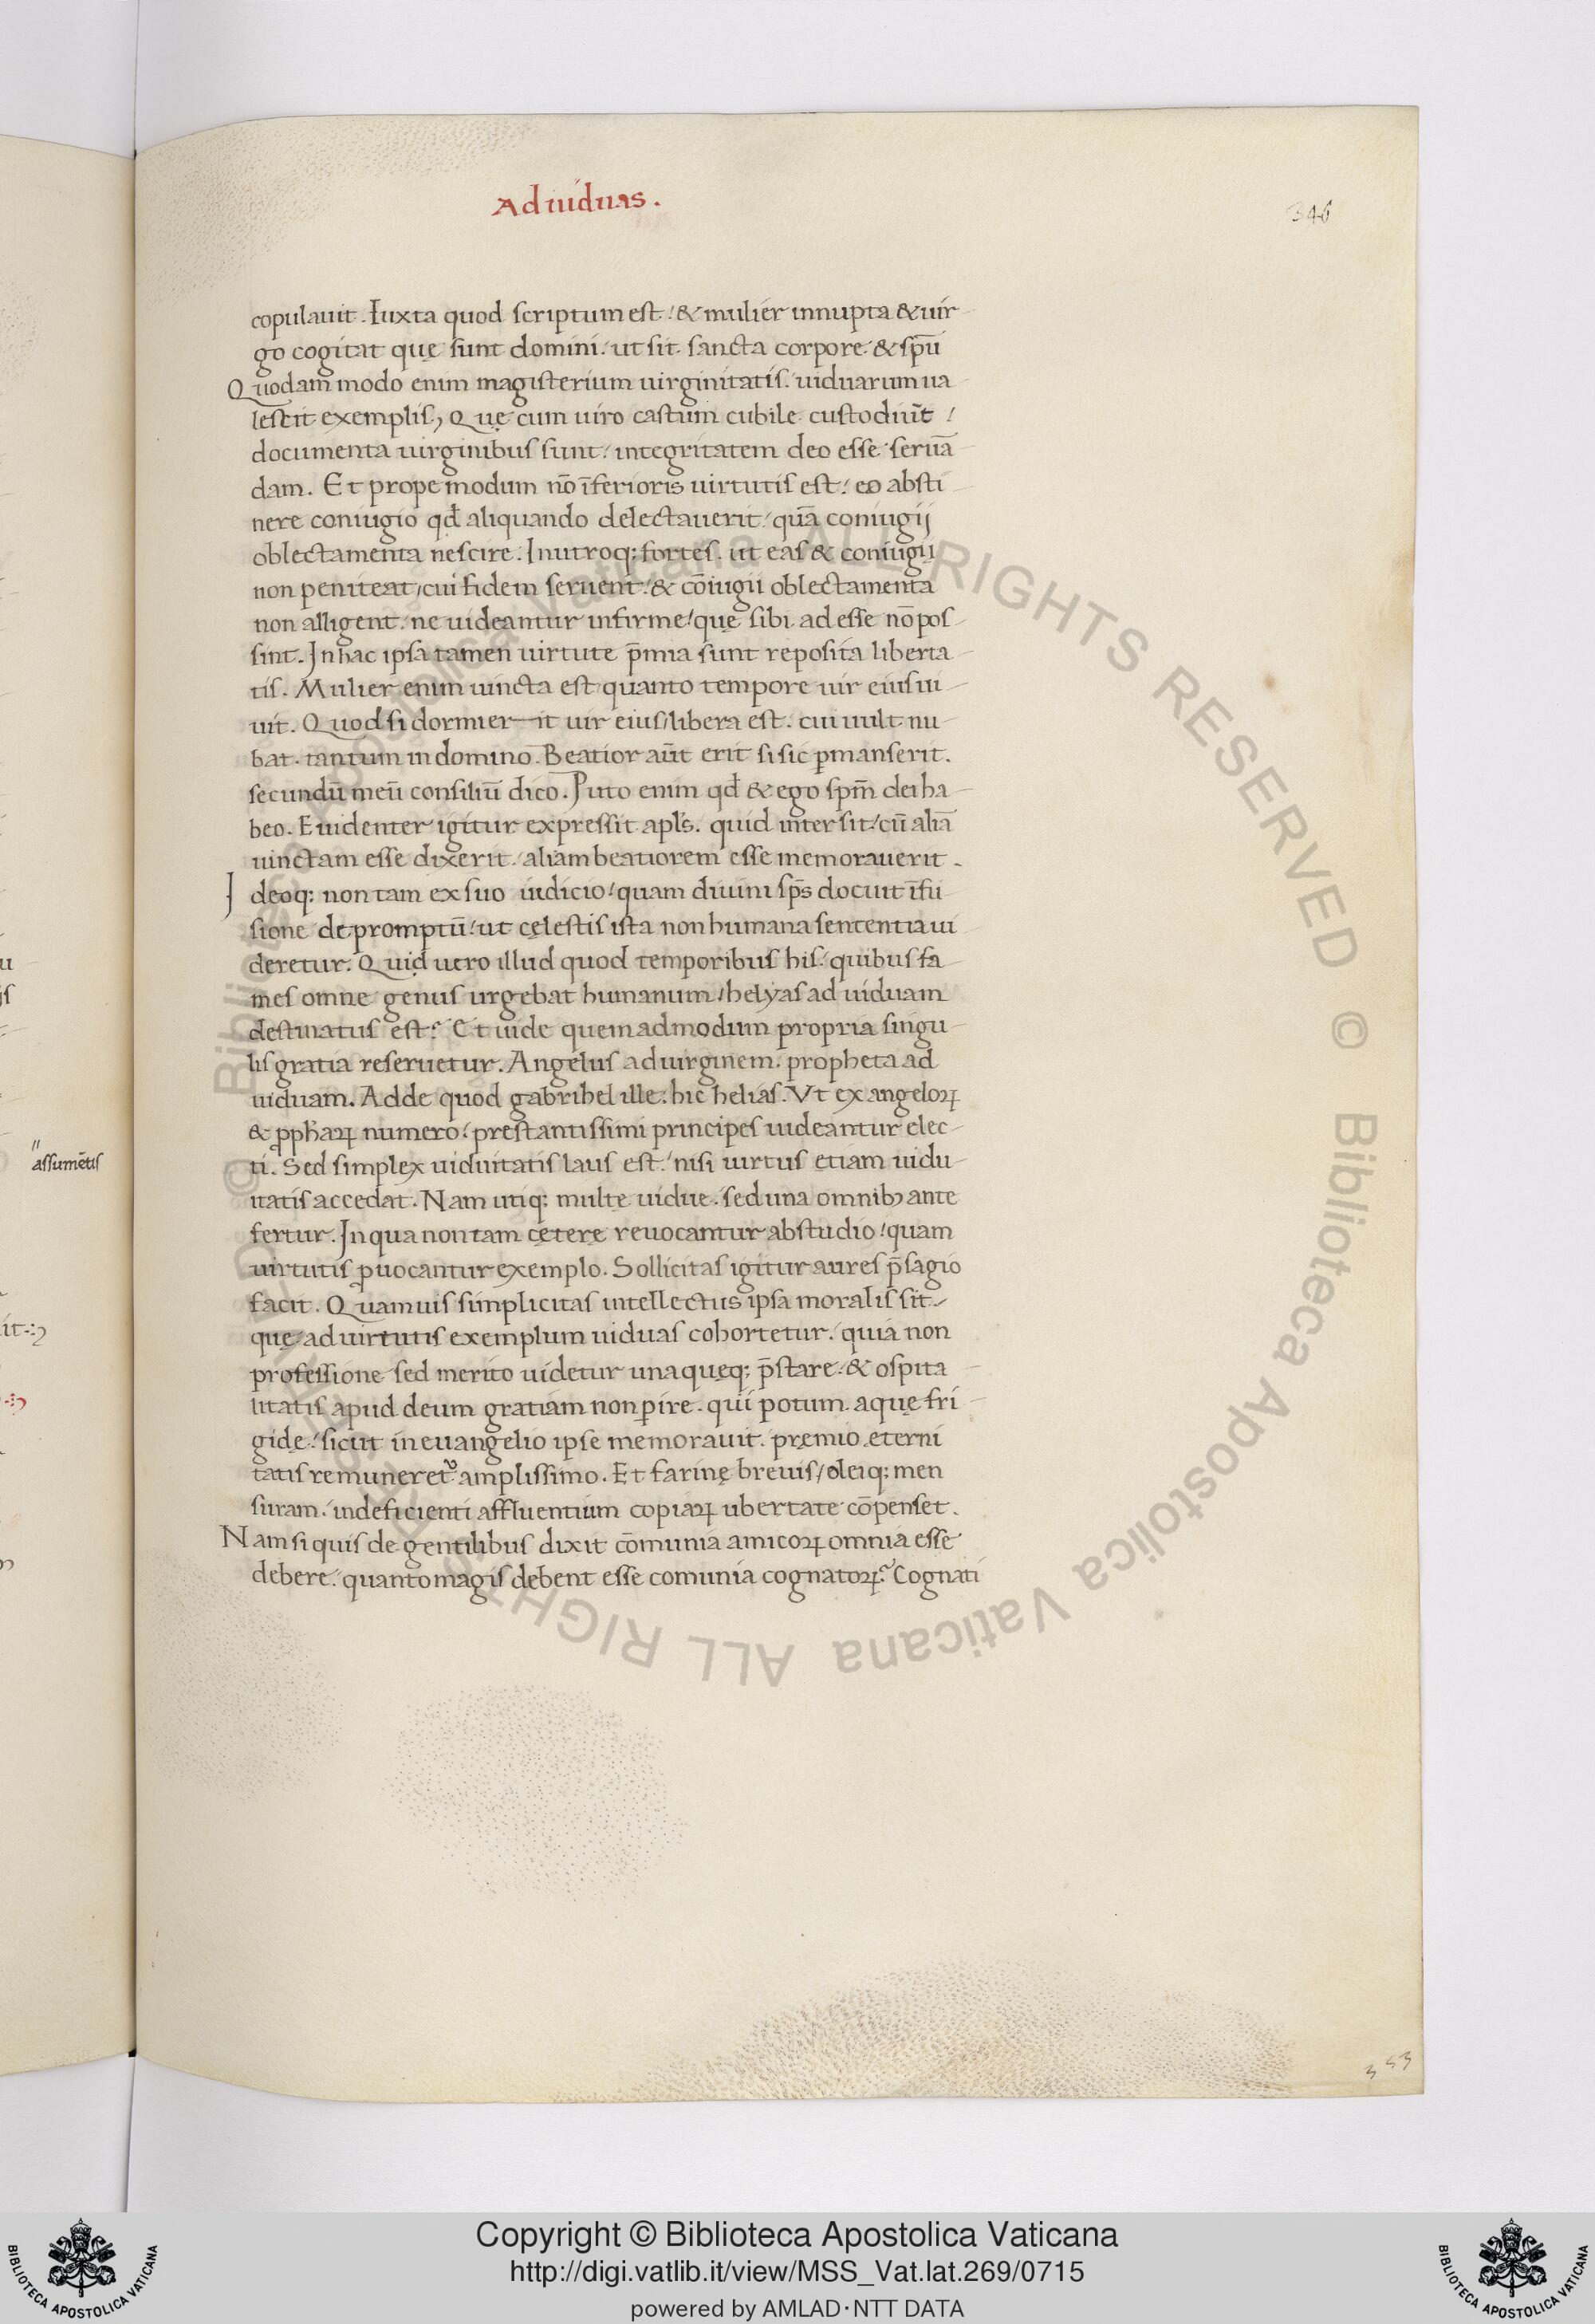 Ad uiduas.
346
copulauit. Iuxta quod scriptum est. & mulier innupta & uir
go cogitat quę sunt domini. ut sit sancta corpore & spū
Quodam modo enim magisterium uirginitatis. uiduarum ua
lescit exemplis, Quę cum uiro castum cubile custodiūt /
documenta uirginibus sunt. integritatem deo esse seruā
dam. Et prope modum nō īferioris uirtutis est. eo absti
nere coniugio qđ aliquando delectauerit. quā coniugij
oblectamenta nescire. In utroq; fortes. ut eas & coniugii
non peniteat / cui fidem seruent. & cōiugii oblectamenta
non alligent. ne uideantur infirme / quę sibi adesse nō pos
sint. In hac ipsa tamen uirtute p̄mia sunt reposita liberta
tis. Mulier enim uincta est quanto tempore uir eius ui
uit. Quod si dormierit uir eius / libera est. cui uult nu
bat. tantum in domino. Beatior aūt erit si sic ꝑmanserit.
secundū meū consiliū dico. Puto enim qđ & ego spm̄ dei ha
beo. Euidenter igitur expressit apls̄. quid intersit. cū aliā
uinctam esse dixerit. aliam beatiorem esse memorauerit.
Ideoq; non tam ex suo iudicio / quam diuini sp̄s docuit īfu
sione depromptū. ut cęlestis ista non humana sententia ui
deretur. Quid uero illud quod temporibus his. quibus fa
mes omne genus urgebat humanum / helyas ad uiduam
destinatus est? Et uide quemadmodum propria singu
lis gratia reseruetur. Angelus ad uirginem. propheta ad
uiduam. Adde quod gabrihel ille. hic helias. Vt ex angeloꝝ
& ꝓphaꝝ numero / prestantissimi principes uideantur elec
ti. Sed simplex uiduitatis laus est. nisi uirtus etiam uidu
itatis accedat. Nam utiq; multe uidue. sed una omnibꝫ ante
fertur. In qua non tam cętere reuocantur ab studio / quam
uirtutis ꝓuocantur exemplo. Sollicitas igitur aures p̄sagio
facit. Quamuis simplicitas intellectus ipsa moralis sit.
quę ad uirtutis exemplum uiduas cohortetur. quia non
professione sed merito uidetur una quęq; p̄stare. & ospita
litatis apud deum gratiam non ꝑire. qui potum aquę fri
gidę. sicut in euangelio ipse memorauit. pręmio eterni
tatis remuneret᷒ amplissimo. Et farinę breuis / oleiq; men
suram. indeficienti affluentium copiaꝝ ubertate cōpenset.
Nam si quis de gentilibus dixit cōmunia amicoꝝ omnia esse
debere. quanto magis debent esse comunia cognatoꝝ? Cognati
assumētis
353
© Biblioteca Apostolica Vaticana ALL RIGHTS RESERVED © Biblioteca Apostolica Vaticana ALL RIGHTS RESERVED
Copyright © Biblioteca Apostolica Vaticana
http://digi.vatlib.it/view/MSS_Vat.lat.269/0715
powered by AMLAD·NTT DATA
BIBLIOTECA APOSTOLICA VATICANA
BIBLIOTECA APOSTOLICA VATICANA